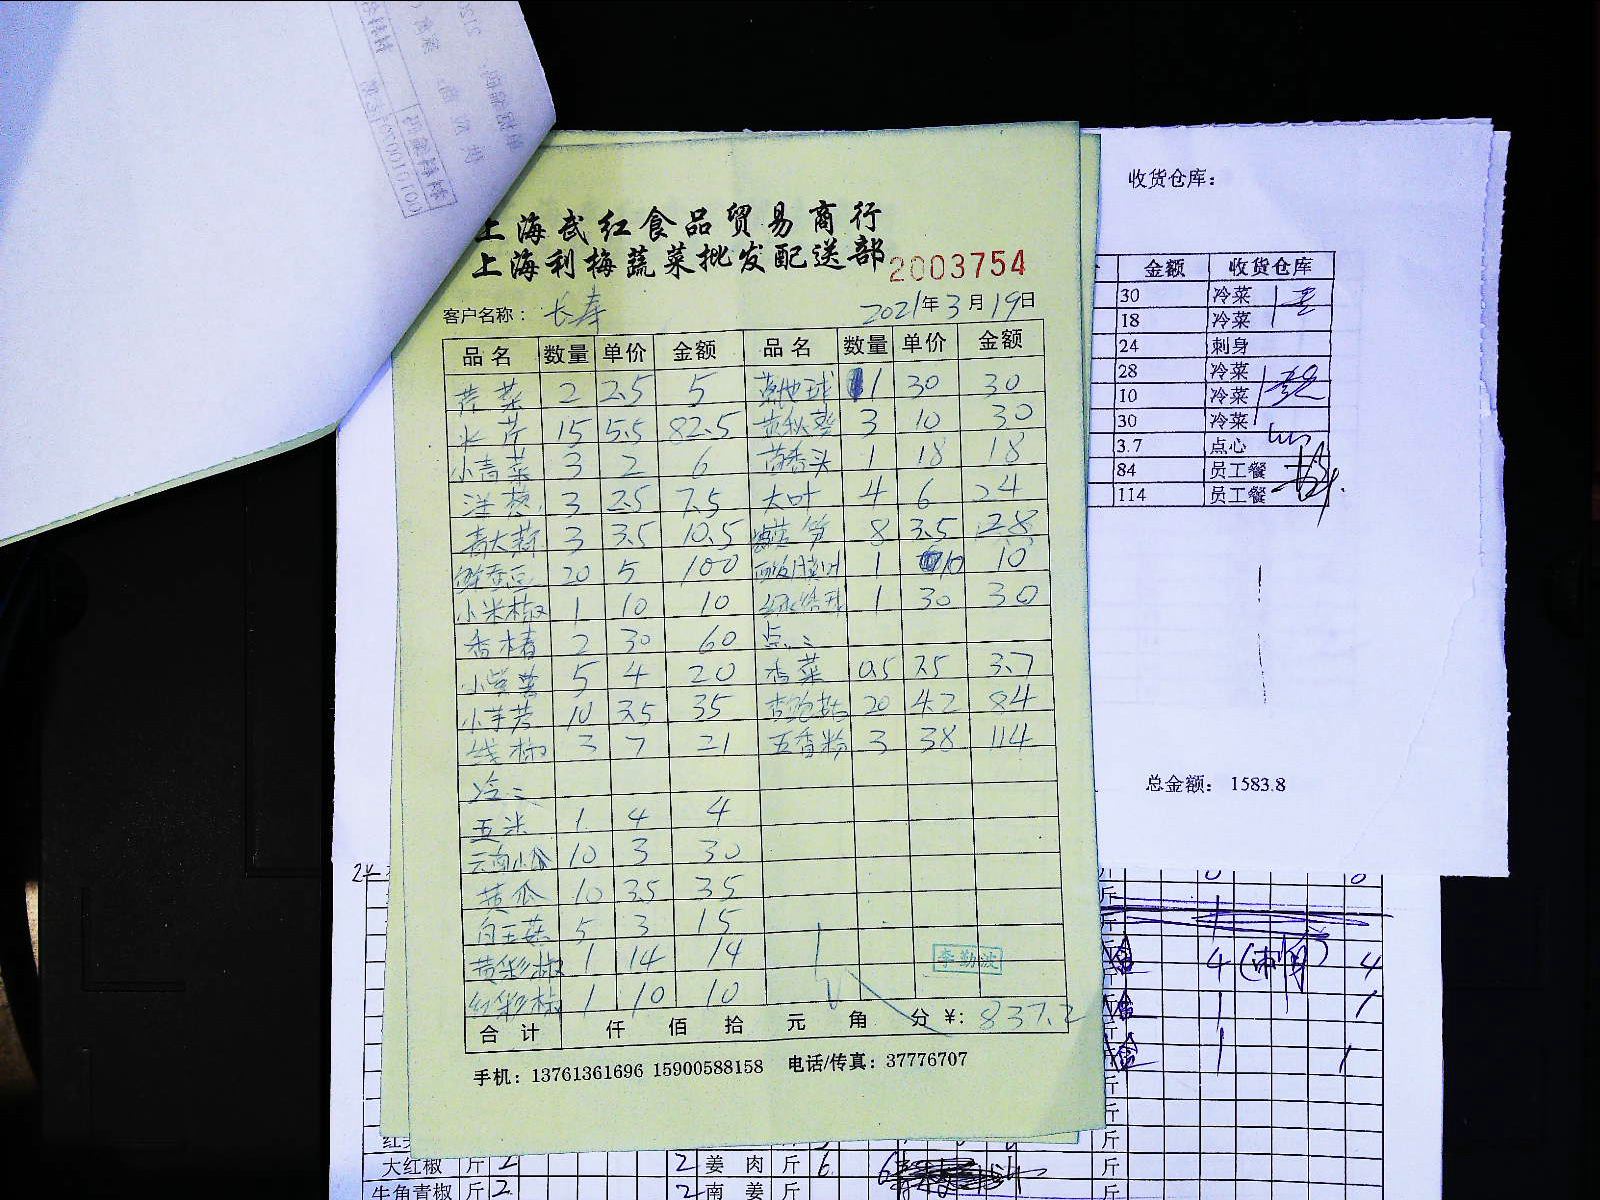 上海武红食品贸易商行
上海利梅蔬菜批发配送部 2003754
客户名称： 长寿 2021年3月19日
品名 数量 单价 金额 品名 数量 单价 金额
芹菜 2 2.5 5 1 30 30
水芹 15 5.5 82.5 黄秋葵 3 10 30
小青菜 3 2 6 茴香头 1 18 18
洋葱 3 2.5 7.5 大叶 4 6 24
青大蒜 3 3.5 10.5 8 3.5 28
鲜蚕豆 20 5 100 1 10 10
小米椒 1 10 10 1 30 30
香椿 2 30 60 点::
小紫薯 5 4 20 香菜 0.5 7.5 3.7
小芋艿 10 3.5 35 杏鲍菇 20 4.2 84
线椒 3 7 21 五香粉 3 38 114
冷::
玉米 1 4 4
云南小瓜 10 3 30
黄瓜 10 3.5 35
白玉菇 5 3 15
黄彩椒 1 14 14
李勤波
红彩椒 1 10 10
合计 仟 佰 拾 元 角 分 ¥: 837.2
手机：13761361696 15900588158 电话/传真：37776707
收货仓库：
金额 收货仓库
30 冷菜
18 冷菜
24 刺身
28 冷菜
10 冷菜
30 冷菜
3.7 点心
84 员工餐
114 员工餐
总金额： 1583.8
斤
斤 4 4
斤 1 1
斤 1 1
斤
斤
斤
大红椒 斤 2 2 姜肉 斤 6 6 斤
牛角青椒 斤 2 2 南姜 斤 斤